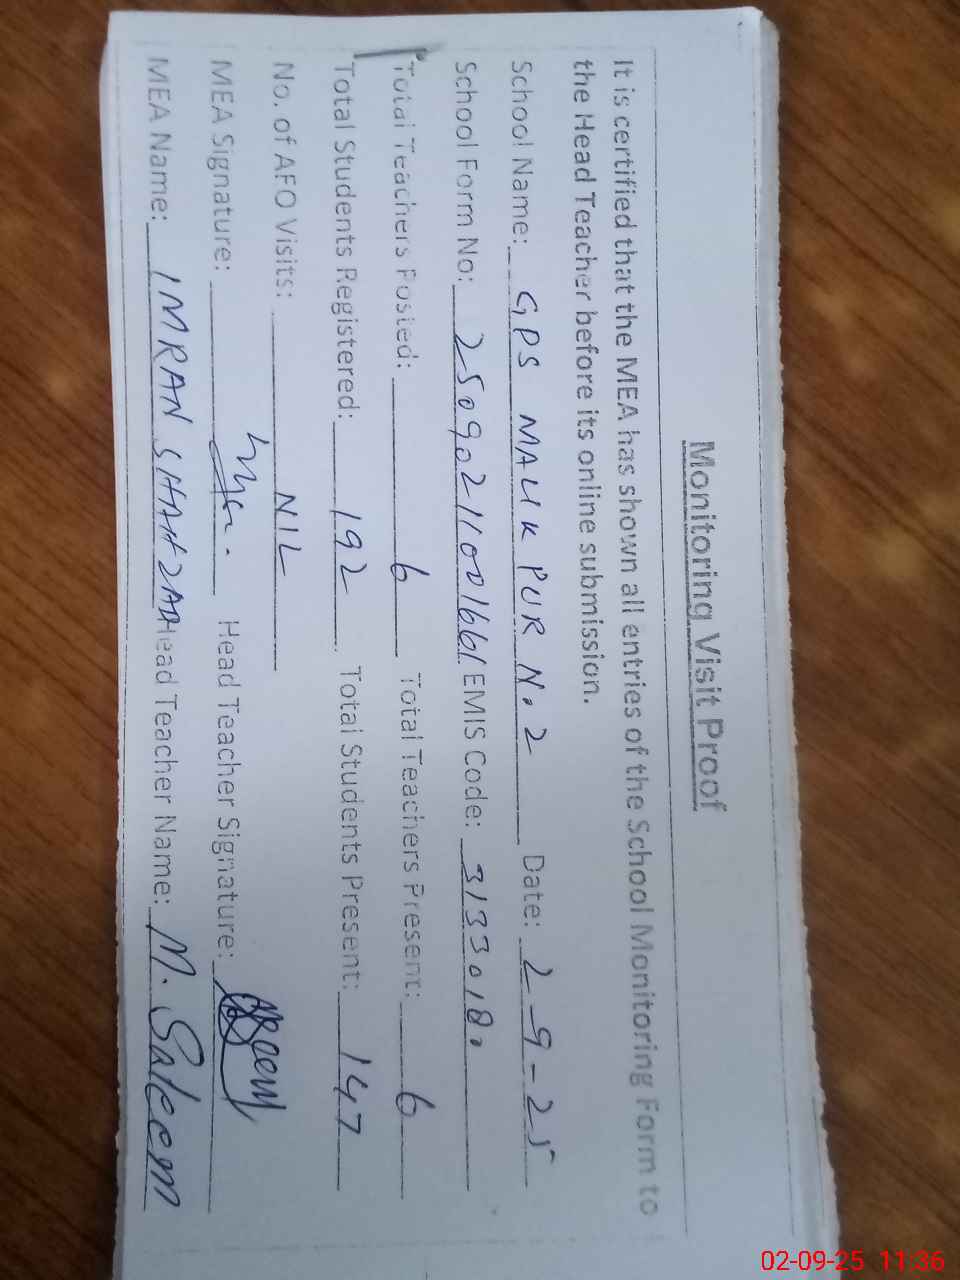 Monitoring Visit Proof
It is certified that the MEA has shown all entries of the School Monitoring Form to
the Head Teacher before its online submission.
School Name: GPS MALIK PUR N.2 Date: 2-9-25
School Form No: 25090211001661 EMIS Code: 31330180
Total Teachers Posted: 6 Total Teachers Present: 6
Total Students Registered: 192 Total Students Present: 147
No. of AFO Visits: NIL
MEA Signature: Head Teacher Signature:
MEA Name: IMRAN SHAHZAD Head Teacher Name: M. Saleem
02-09-25 11:36